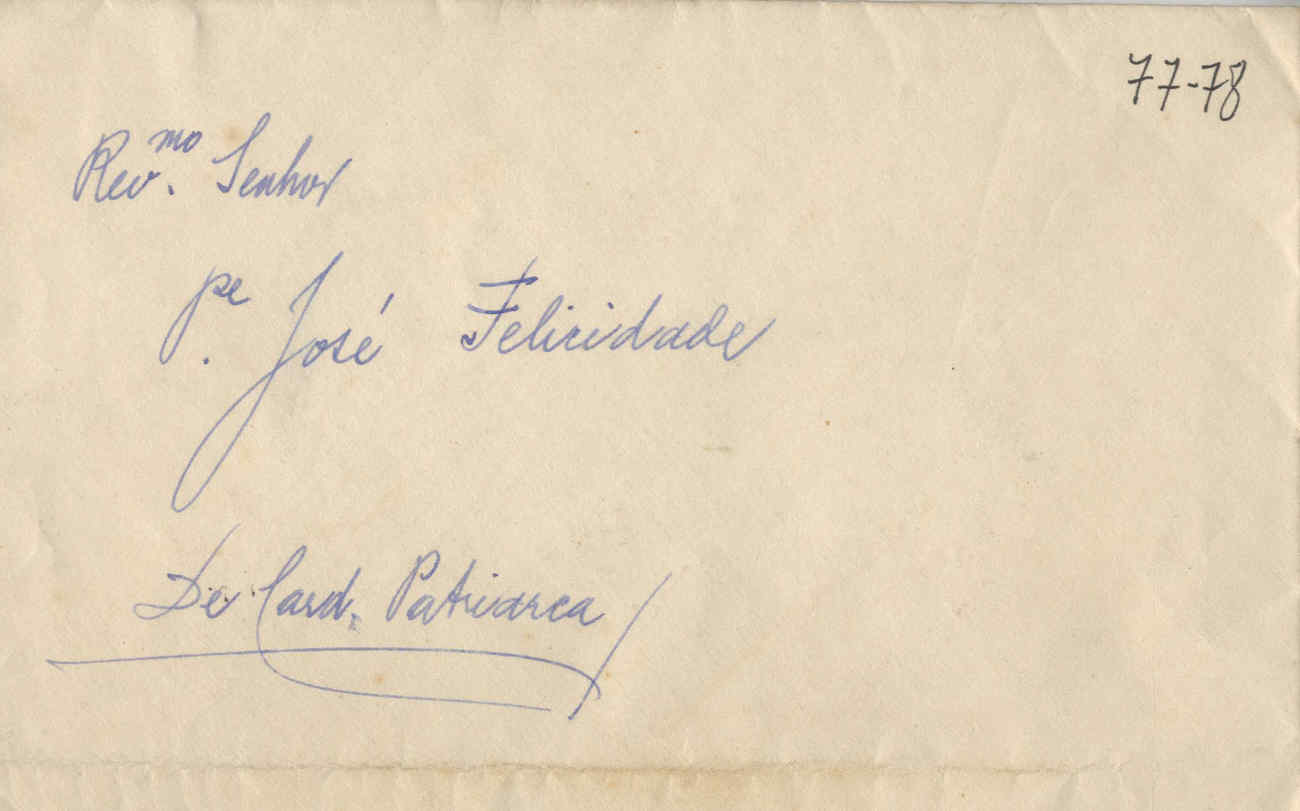 77-78
Rev.mo Senhor
Pe. José Felicidade
De Card. Patriarca